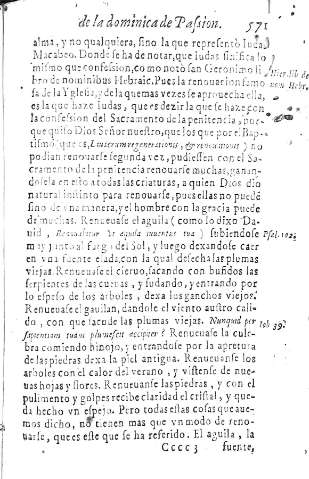 de la dominica de Passion. 571
alma, y no qualquiera, sino la que representò Iudas
Macabeo. Donde se ha de notar, que Iudas sinifica lo
mismo que confession, como notò san Geronimo li
bro de nominibus Hebraic. Pues la renouacion famo
sa de la Yglesia, y de la que mas vezes se aprouecha ella,
es la que haze Iudas, que es dezir la que se haze con
la confession del Sacramento de la penitencia, por-
que quiso Dios Señor nuestro, que los que por el Bap-
tismo que es, Lauacrum regenerationis, & renouationis) no
podian renouarse segunda vez, pudiessen con el Sa-
cramento de la penitencia renouarse muchas, ganan-
dosela en esto a todas las criaturas, a quien Dios dio
natural instinto para renouarse, pues ellas no puedē
sino de vna manera, y el hombre con la gracia puede
de muchas. Renueuase el aguila (como lo dixo Da-
uid, Renouabitur vt aquilæ iuuentus tua) subiendose
muy junto al fuego del Sol, y luego dexandose caer
en vna fuente elada, con la qual desecha las plumas
viejas. Renueuase el cieruo, sacando con bufidos las
serpientes de las cueuas, y sudando, y entrando por
lo espeso de los arboles, dexa los ganchos viejos.
Renueuase el gauilan, dandole el viento austro cali-
do, con que sacude las plumas viejas. Nunquid per
sapientiam tuam plumescit accipiter? Renueuase la cule-
bra comiendo hinojo, y entrandose por la apretura
de las piedras dexa la piel antigua. Renueuanse los
arboles con el calor del verano, y vistense de nue-
uas hojas y flores. Renueuanse las piedras, y con el
pulimento y golpes recibe claridad el cristal, y que-
da hecho vn espejo. Pero todas estas cosas que aue-
mos dicho, no tienen mas que vn modo de reno-
uarse, que es este que se ha referido. El aguila, la
Cccc 3 fuente,
Hier. lib. de
nom Hebr.
Psal. 102.
Iob 39.